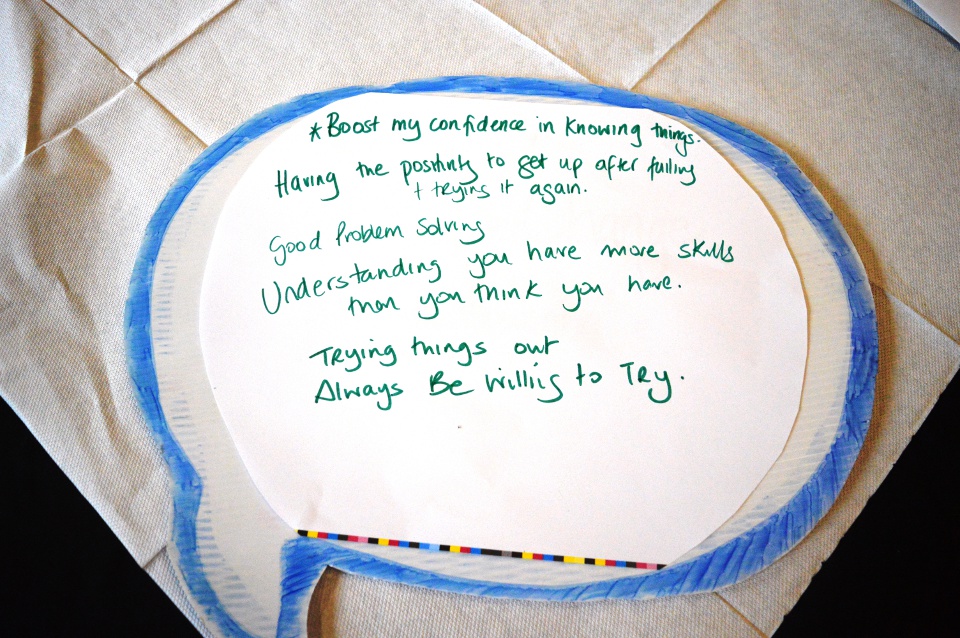 * Boost my confidence in Knowing things.
Having the positivity to get up after failing
+ trying it again.
Good Problem Solving
Understanding you have more skills
than you think you have.
Trying things out
Always Be willing to Try.